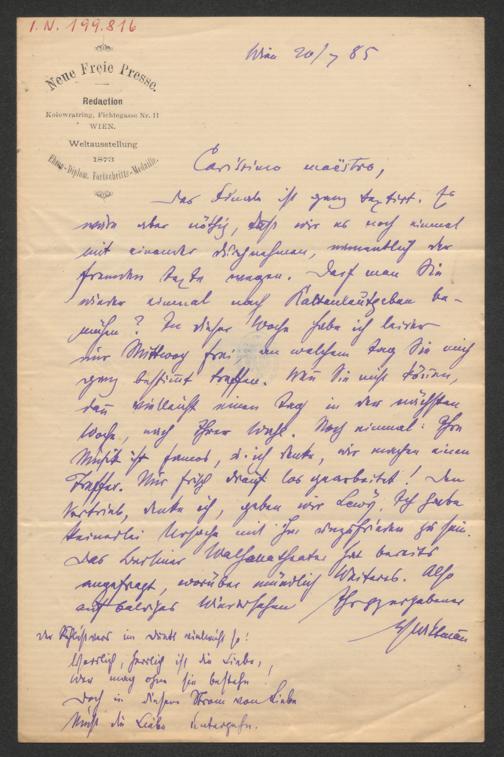 I. N. 199.816
Neue Freie Presse.
Redaction
Kolowratring, Fichtegasse Nr. 11
WIEN.
Weltausstellung
1873
Ehren-Diplom. Fortschritts-Medaille.
Wien 20/7 85
Carissimo maëstro,
das Finale ist ganz textirt. Es
wäre aber nöthig, daß wir es noch einmal
mit einander durchnehmen, namentlich der
fremden Texte wegen. Darf man Sie
wieder einmal nach Kaltenleutgeben be-
mühen? In dieser Woche habe ich leider
nur Mittwoch frei, an welchem Tag Sie mich
ganz bestimmt treffen. Wenn Sie nicht können,
dann vielleicht einen Tag in der nächsten
Woche, nach Ihrer Wahl. Noch einmal: Ihre
Musik ist famos, u. ich denke, wir machen einen
Treffer. Nur frisch drauf los gearbeitet! Den
Vertrieb, denke ich, geben wir Lewy. Ich habe
keinerlei Ursache mit ihm unzufrieden zu sein.
Das Berliner Walhallatheater hat bereits
angefragt, worüber mündlich Weiteres. Also
auf baldiges Wiedersehen Ihr ergebener
Wittmann
Der Schlußvers im Duett vielleicht so:
Herrlich, herrlich ist die Liebe,
Wer mag ohne sie bestehn
Doch in diesem Strom von Liebe
Muß die Liebe untergehn.